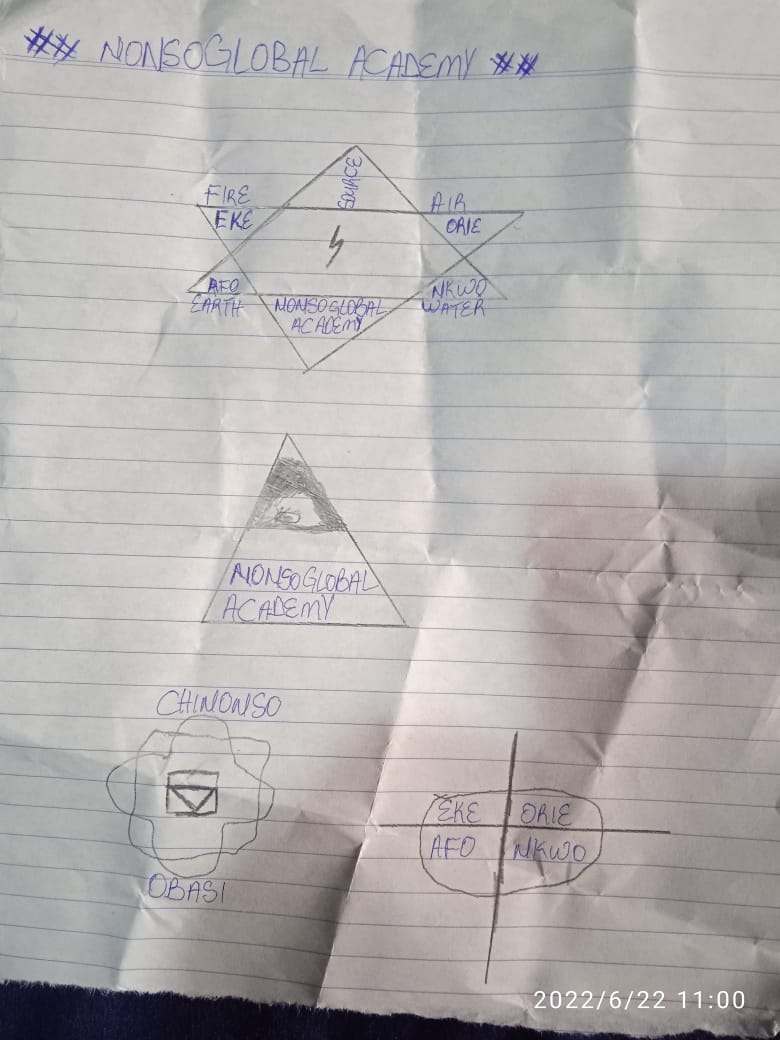 ## NONSOGLOBAL ACADEMY ##
SOURCE
FIRE
AIR
EKE
ORIE
AFO
NKWO
EARTH
NONSOGLOBAL
WATER
ACADEMY
NONSOGLOBAL
ACADEMY
CHINONSO
OBASI
EKE ORIE
AFO NKWO
2022/6/22 11:00